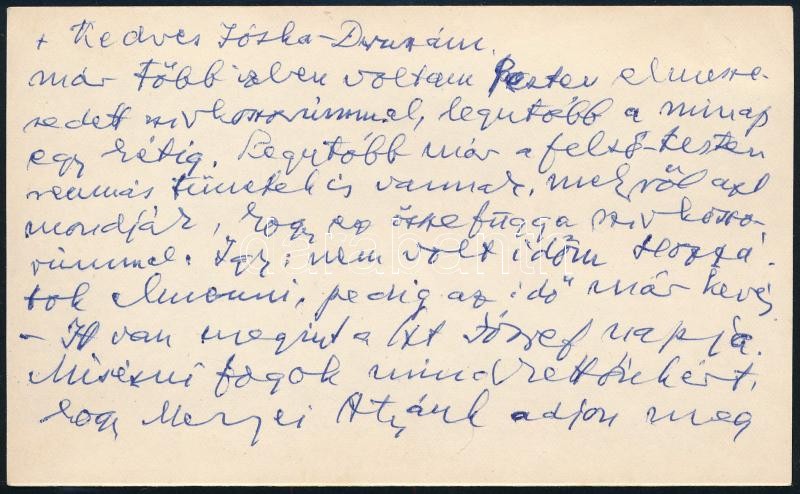 + Kedves Jóska-Druzsám.
már több izben voltam Pesten elmesze-
sedett szivkoszorúmmal, legutóbb a minap
egy hétig. Legutóbb már a felső-testen
reumás tünetek is vannak, mekről azt
mondják, hogy ez összefügg a szivkoszo-
rúmmal. Igy: nem volt időm Hozzá-
tok elmenni, pedig az idő már kevés
- Itt van megint a Szt József napja.
Misézni fogok mindkettőnkért,
hogy Mennyei Atyánk adjon meg